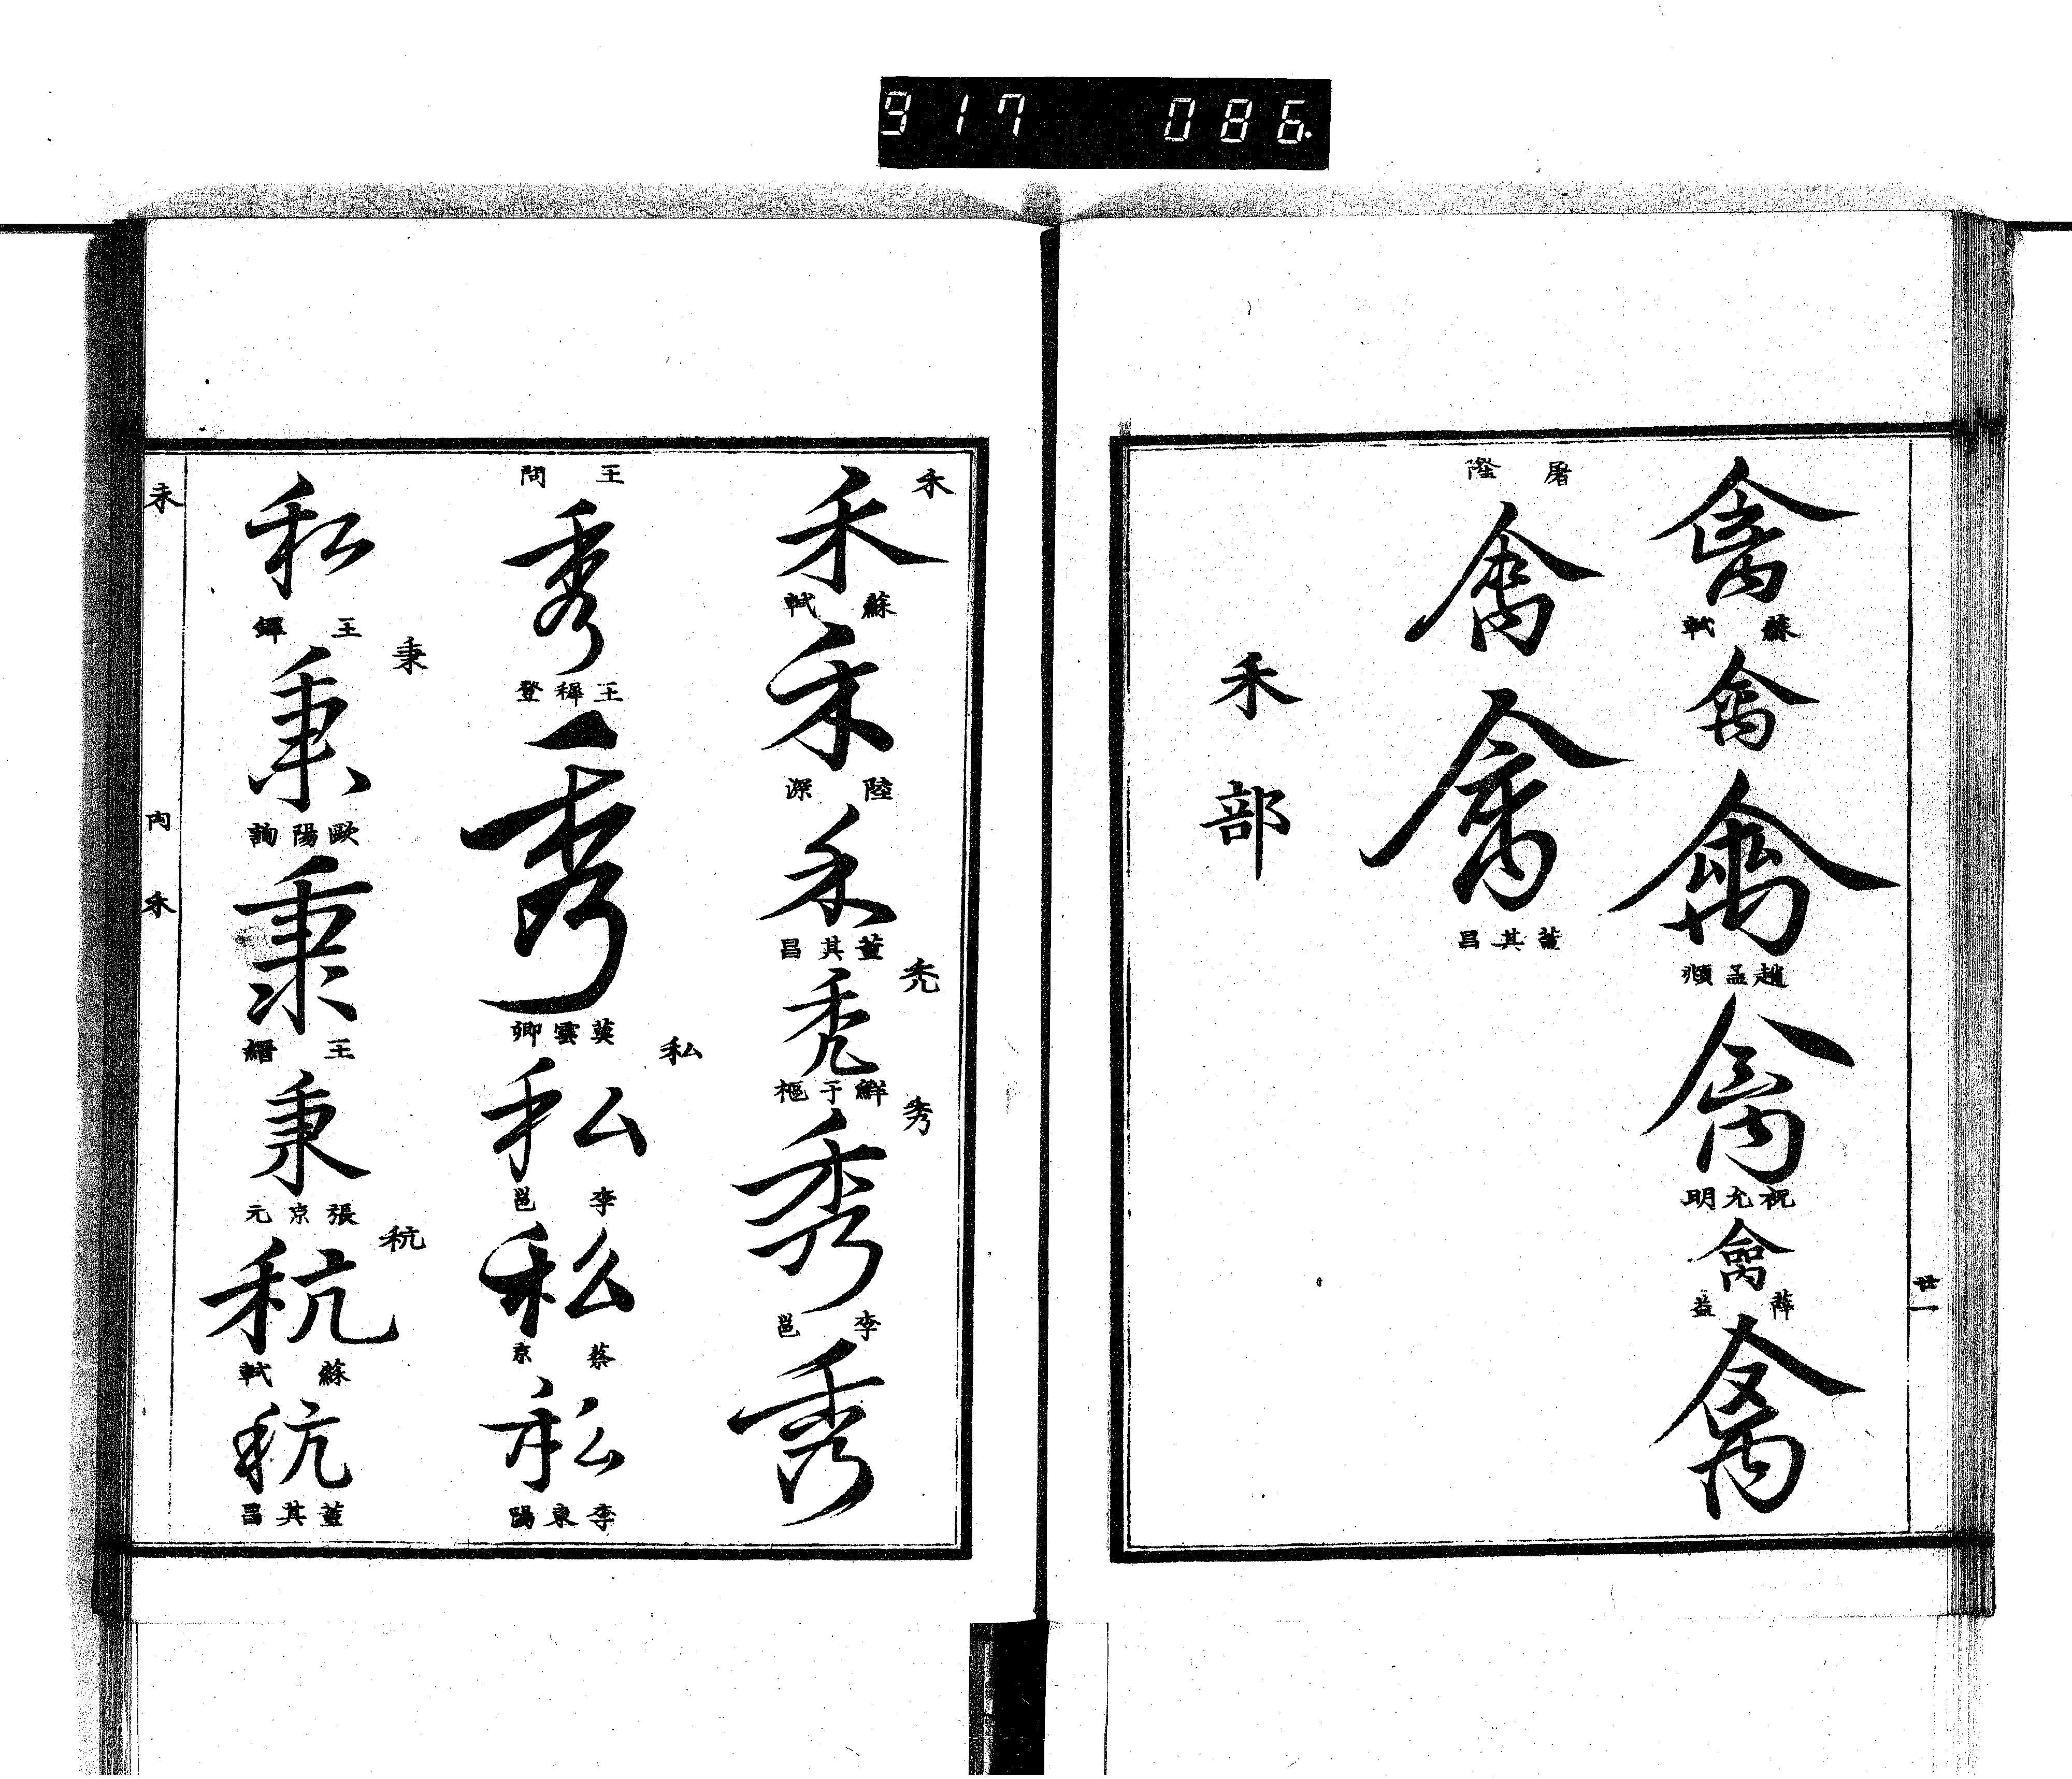 917 086
禽
蘇軾
禽
禽
趙孟頫
禽
祝允明
禽
薛益
禽
廿一
屠隆
禽
禽
董其昌
禾部
禾
禾
蘇軾
禾
陸深
禾
董其昌
禿
禿
鮮于樞
秀
秀
李邕
秀
王問
秀
王穉登
秀
莫雲卿
私
私
李邕
私
蔡京
私
李東陽
私
王鐸
秉
秉
歐陽詢
秉
王縉
秉
張京元
秔
秔
蘇軾
秔
董其昌
禸 禾